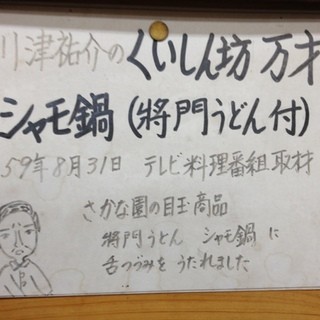 川津祐介のくいしん坊万才
シャモ鍋(將門うどん付)
59年8月31日 テレビ料理番組取材
さかな園の目玉商品
將門うどん シャモ鍋に
舌つづみをうたれました